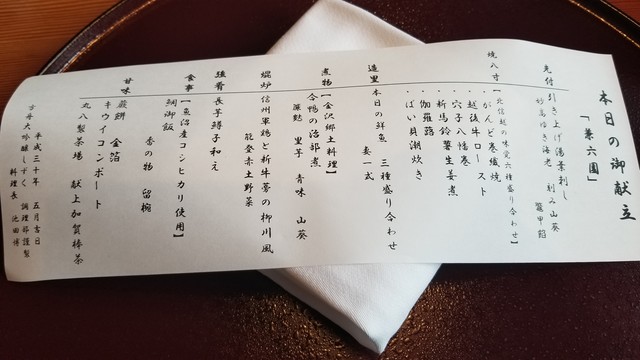 本日の御献立
「兼六園」
先付
引き上げ湯葉刺し 刻み山葵
妙高ゆき海老 鼈甲餡
焼八寸
【北信越の味覚六種盛り合わせ】
・がんど巻織焼
・越後牛ロースト
・穴子八幡巻
・新馬鈴薯生姜煮
・伽羅蕗
・ばい貝潮炊き
造里
本日の鮮魚 三種盛り合わせ
妻一式
煮物
【金沢郷土料理】
合鴨の治部煮
簾麩 里芋 青味 山葵
焜炉
信州軍鶏と新牛蒡の柳川風
能登赤土野菜
強肴
長芋鱘子和え
食事
【魚沼産コシヒカリ使用】
鯛御飯
香の物 留椀
甘味
蕨餅 金箔
キウイコンポート
丸八製茶場 献上加賀棒茶
平成三十年 五月吉日
方舟大吟醸しずく 調理部謹製
料理長 池田博